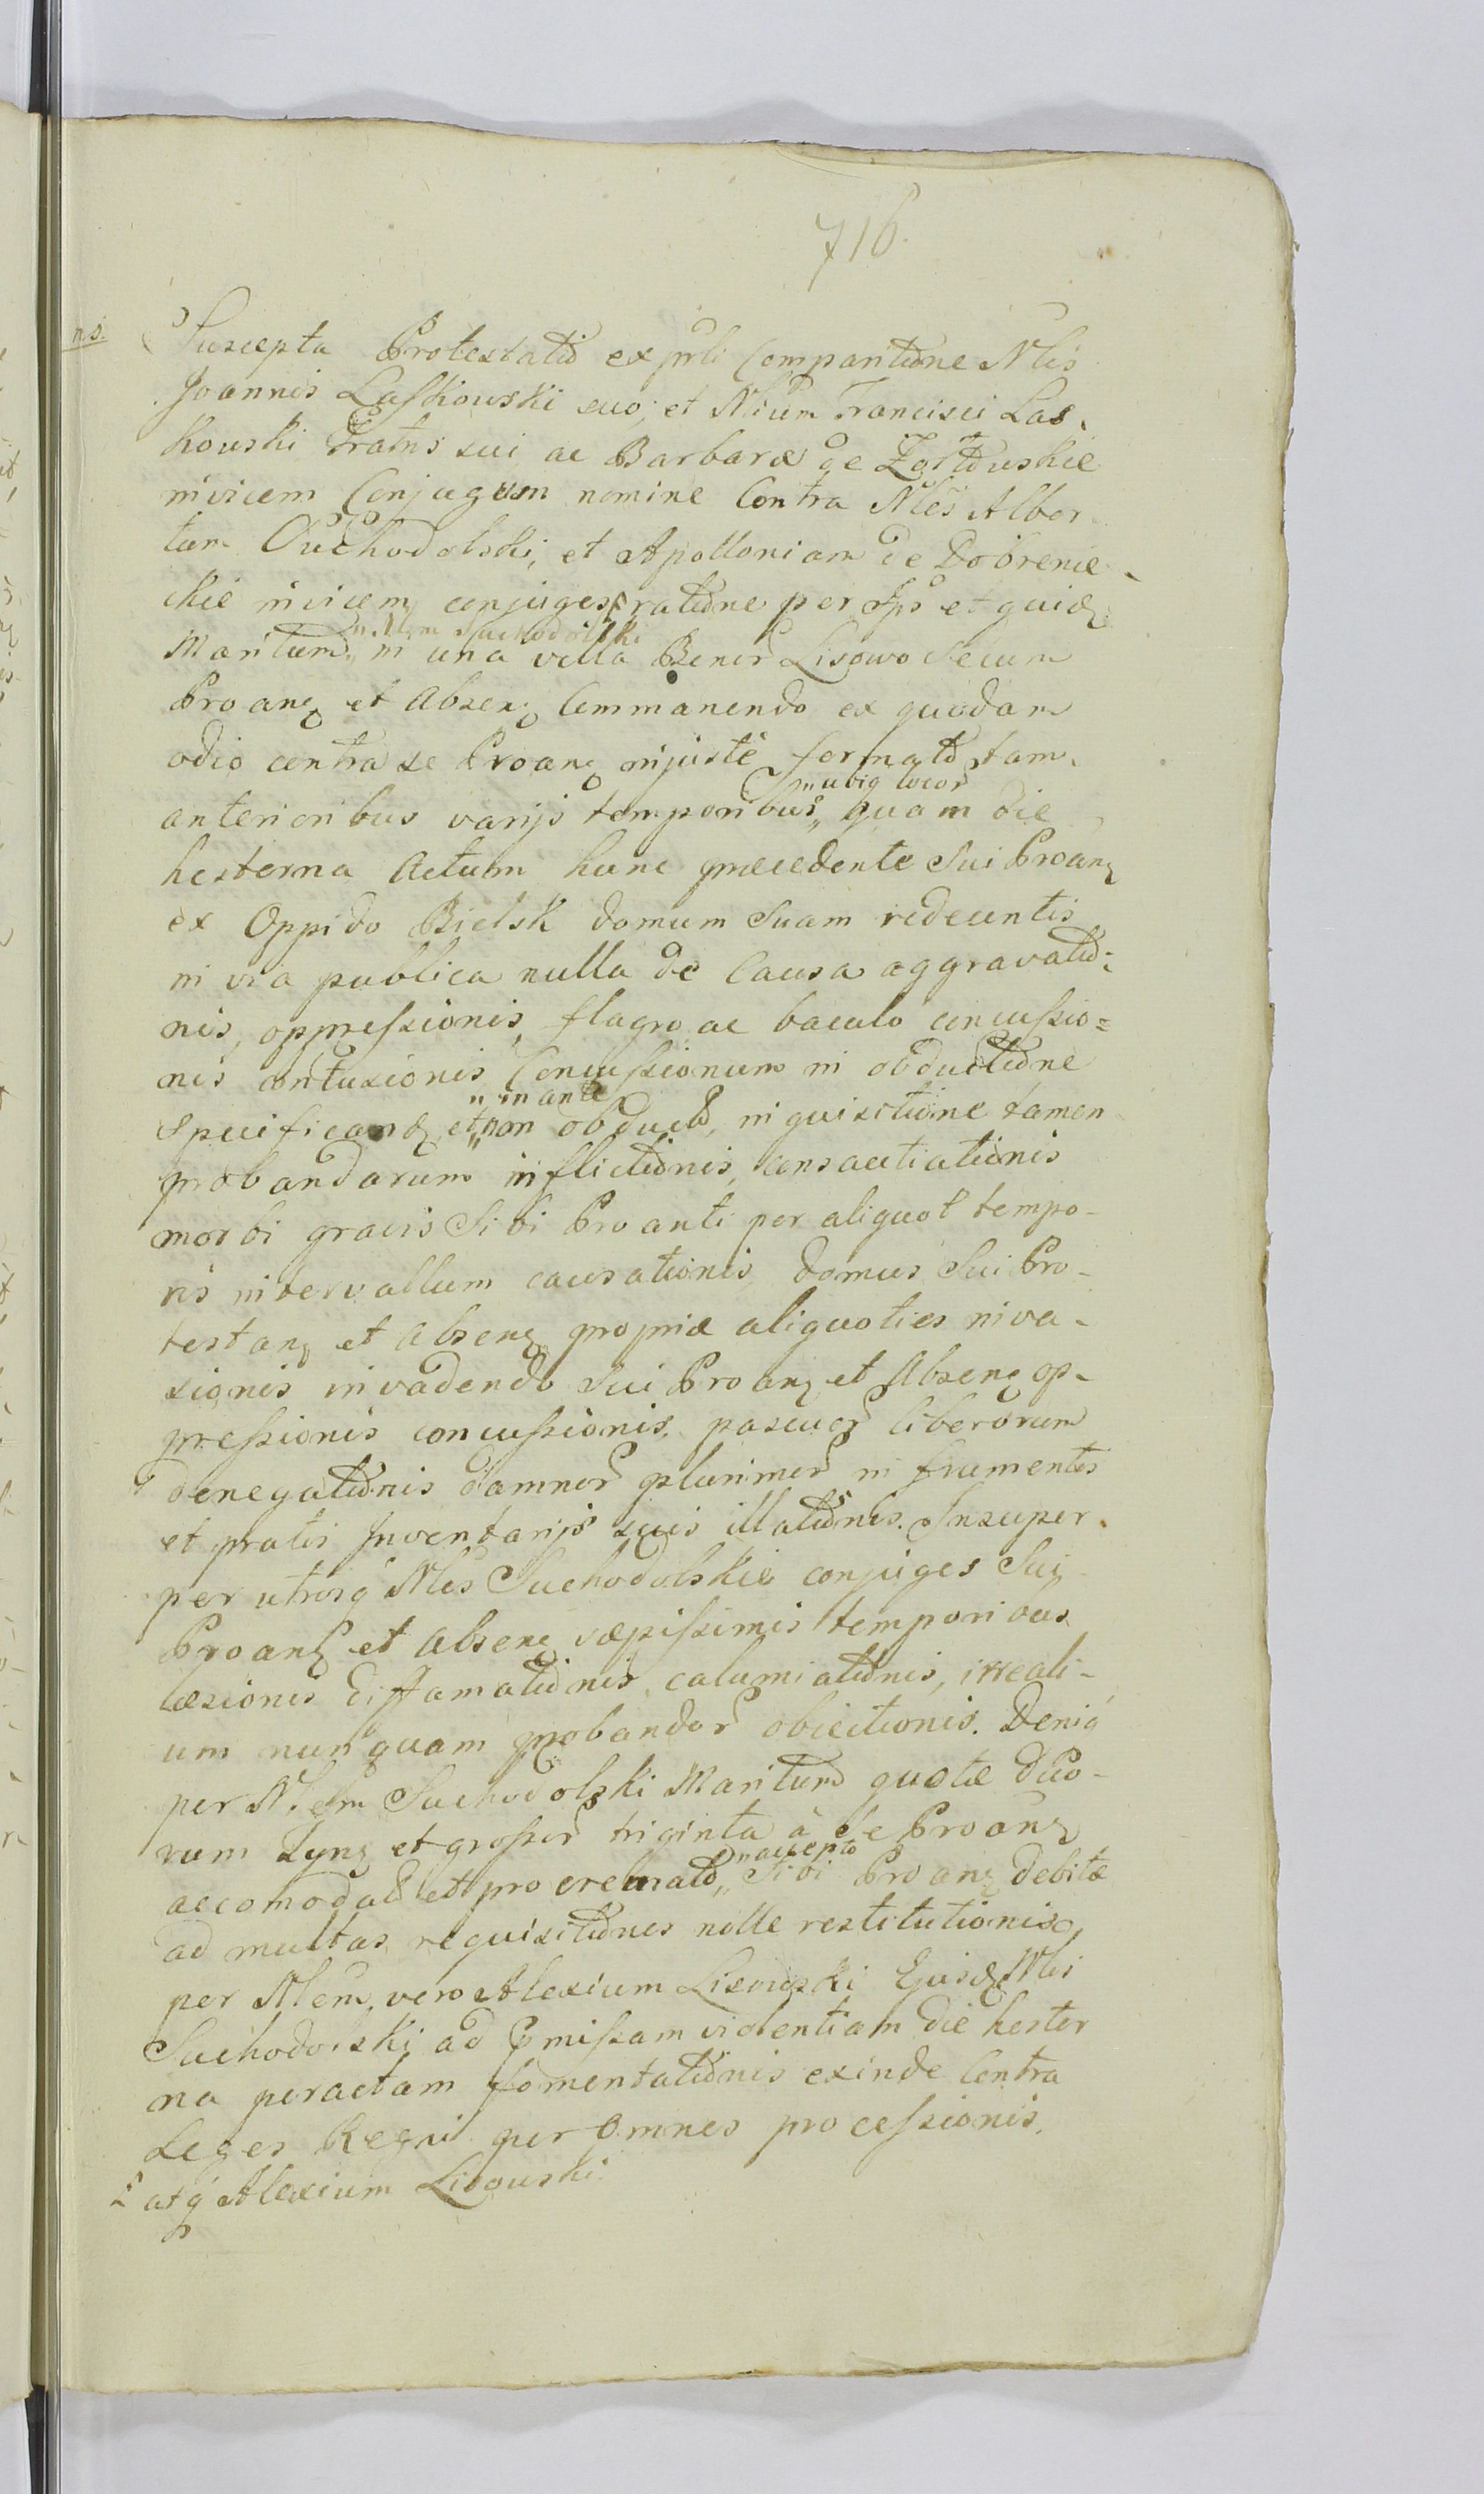 716.
n.s.
Suscepta Protestatio ex psnli Comparitione Nlis
Joannis Laſkowski suo, et Nlium Francisci Las-
kowski Fratris sui ac Barbaræ de
invicem Conjugum nomine Contra Nles Alber-
tum Suchodolski, et Apolloniam de Dobrenie-
ckie invicem conjuges ratione per Ips et quidз
" Nlem Suchodolski
Maritum " in una villa Bonor Lisowo secum
Proanз et Absenз Commanendo ex quodam
odio contra se Proanз injuste formato tam
" ubiq locor
anterioribus varijs temporibus " quam die
hesterna Actum hunc præcedente Sui Proanз
ex Oppido Bielsk domum Suam redeuntis
in via publica nulla de Causa aggravatio-
nis, oppreſsionis, flagro ac baculo concuſsio=
nis contusionis Concuſsionum in obductione
" in ante
Specificandз et " non obducto, inquisitione tamen
probandarum inflictionis, consauciationis
morbi gravis Sibi Proanti per aliquot tempo-
ris intervallum causationis domus Sui Pro-
testanз et Absenз propriæ aliquoties inva-
sionis invadendo Sui Proanз et Absenз op-
preſsionis concuſsionis, pascuor liberorum
denegationis damnor plurimor in frumentis
et pratis Inventarijs suis illationis. Insuper
per utrosq Nles Suchodolskie conjuges Sui
Proanз et Absenз sæpiſsimis temporibus
læsionis diffamationis, calumiationis, irreali-
um nunquam probandor obiectionis. Deniq
per Nlem Suchodolski Maritum quotæ duo-
rum Tynз et groſsor triginta à Se Proanз
" accepto
accomodato et pro cremato " Sibi Proanз debitæ
ad multas requisitiones nolle restitutionis,
per Nlem vero Alexium Lisowski Ejusdз Nlis
Suchodolski ad pmiſsam violentiam die hester
na peractam fomentationis exinde Contra
Leges Regni per omnes proceſsionis.
atq Alexium Lisowski